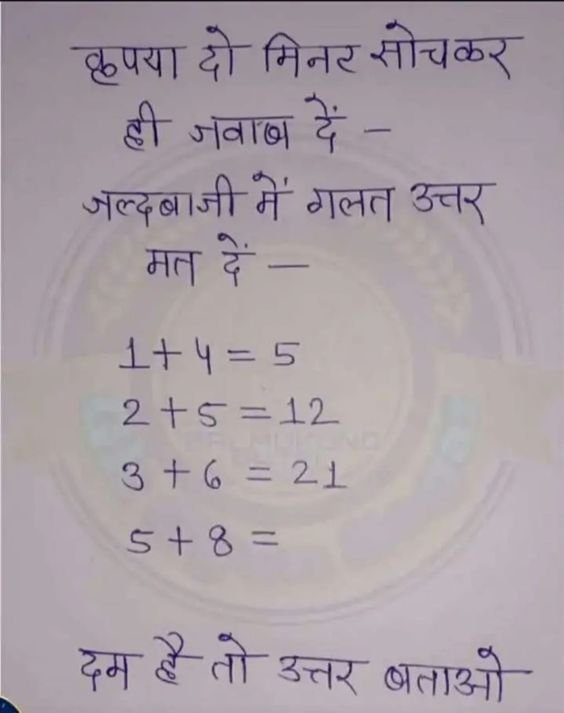 कृपया दो मिनट सोचकर
ही जवाब दें –
जल्दबाजी में गलत उत्तर
मत दें —
1 + 4 = 5
2 + 5 = 12
3 + 6 = 21
5 + 8 =
दम है तो उत्तर बताओ